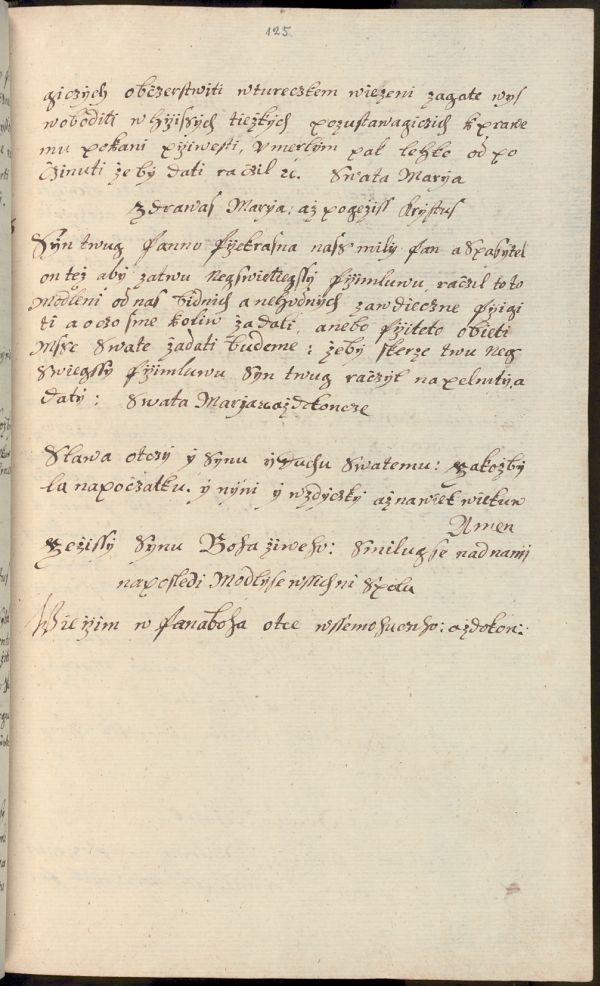 125.
giczých občzerstwiti w tureczkem wiezeni zagate wys
wobóditi w hržissých tiezkých pozustawagiczich k prawe
mu pokani przíwesti, v mertým pak lehko od po
čzinuti že by dati račzil ꝛc. Swata Marýa
Zdrawas Marýa: až po gežiss Krýstus
Sýn twug Panno Przekrasna nass milý Pan a Spasýtel
on též abý za twu Negswietiegssý Przimluwu, račzil toto
Modleni od nas bidnich a nehodných zawdieczne Przigi
ti a o czo sme koliw žadali, anebo Przi teto obieti
Msse Swate žadati budeme: žebý skerze twu Neg
Swiegssý Przimluwu Sýn twug račzýl napelnitý a
datý: Swata Marýa ꝛc až dokoncze
Slawa otczý ý Sýnu ý Duchu Swatemu: Jakožbý
la napočzatku. ý nýni ý wždýczký až na wiek wiekuw
Amen
Ježissý Sýnu Boha žiweho: Smilug se nad nami
naposledi Modlýse wssichni Spolu
Wieržim w Pana boha otce wssemohuczho: až dokon: